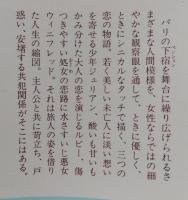 パリの下宿を舞台に繰り広げられるさ
まざまな人間模様を、女性ならではの細
やかな観察眼を通して、ときに優しく、
ときにシニカルなタッチで描く、三つの
恋の物語。若く美しい未亡人に淡い想い
を寄せる少年ジュリアン、酸いも甘いも
かみ分けた大人の恋を演じるルビー、傷
つきやすい処女の恋路に水さすいじ悪女
ウィニフレッド。それは旅人の姿を借り
た人生の縮図。主人公と共に苛立ち、戸
惑い、安堵する共犯関係がそこにはある。